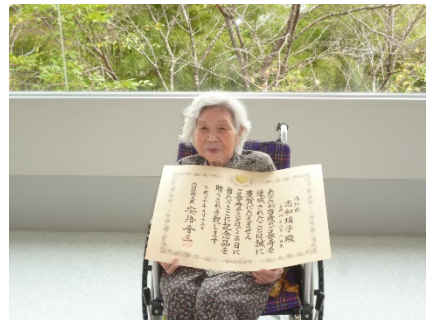 殿
あなたが百歳のご長寿を
達成されたことは誠に
慶賀にたえません
当たりここに記念品を
贈りこれを祝します
内閣総理大臣 安倍晋三